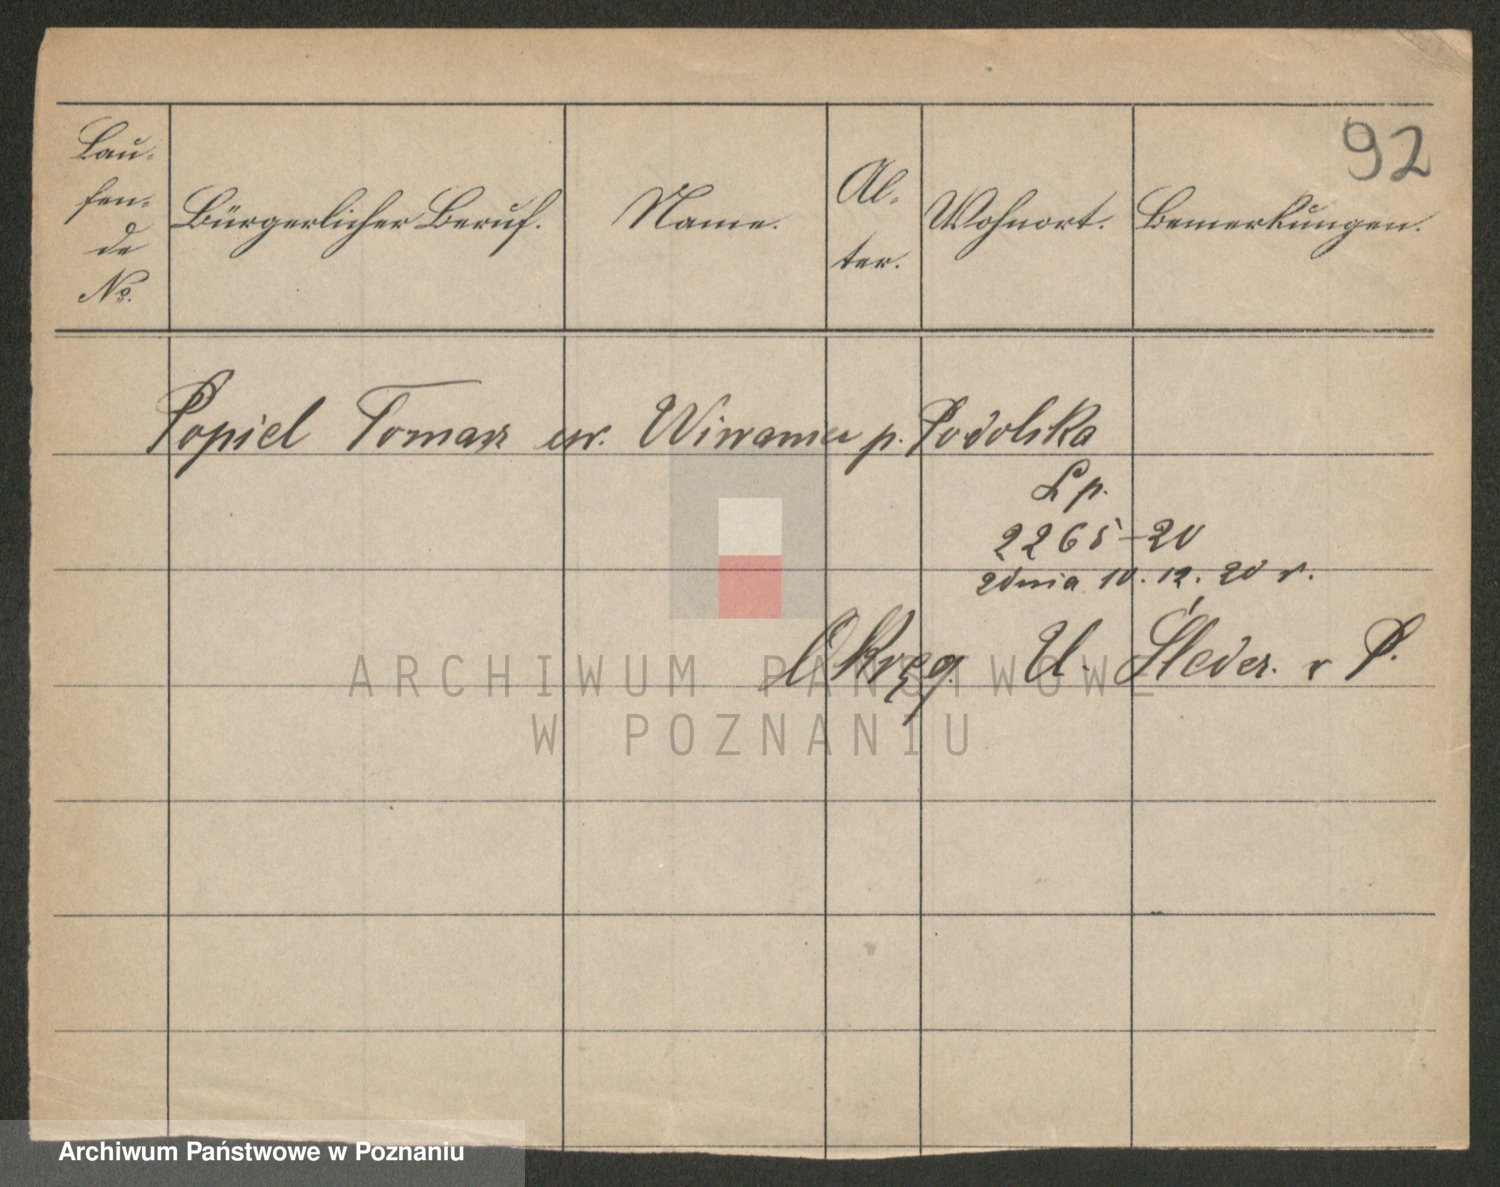 92
Lau-
fen-
de
No.
Bürgerlicher Beruf.
Name.
Al-
ter.
Wohnort.
Bemerkungen.
Popiel Tomasz p. Podolska
Lp.
2265-20
zdnia 10.12.20 r.
Okręg. U. Śledcz. v P.
ARCHIWUM PAŃSTWOWE
W POZNANIU
Archiwum Państwowe w Poznaniu